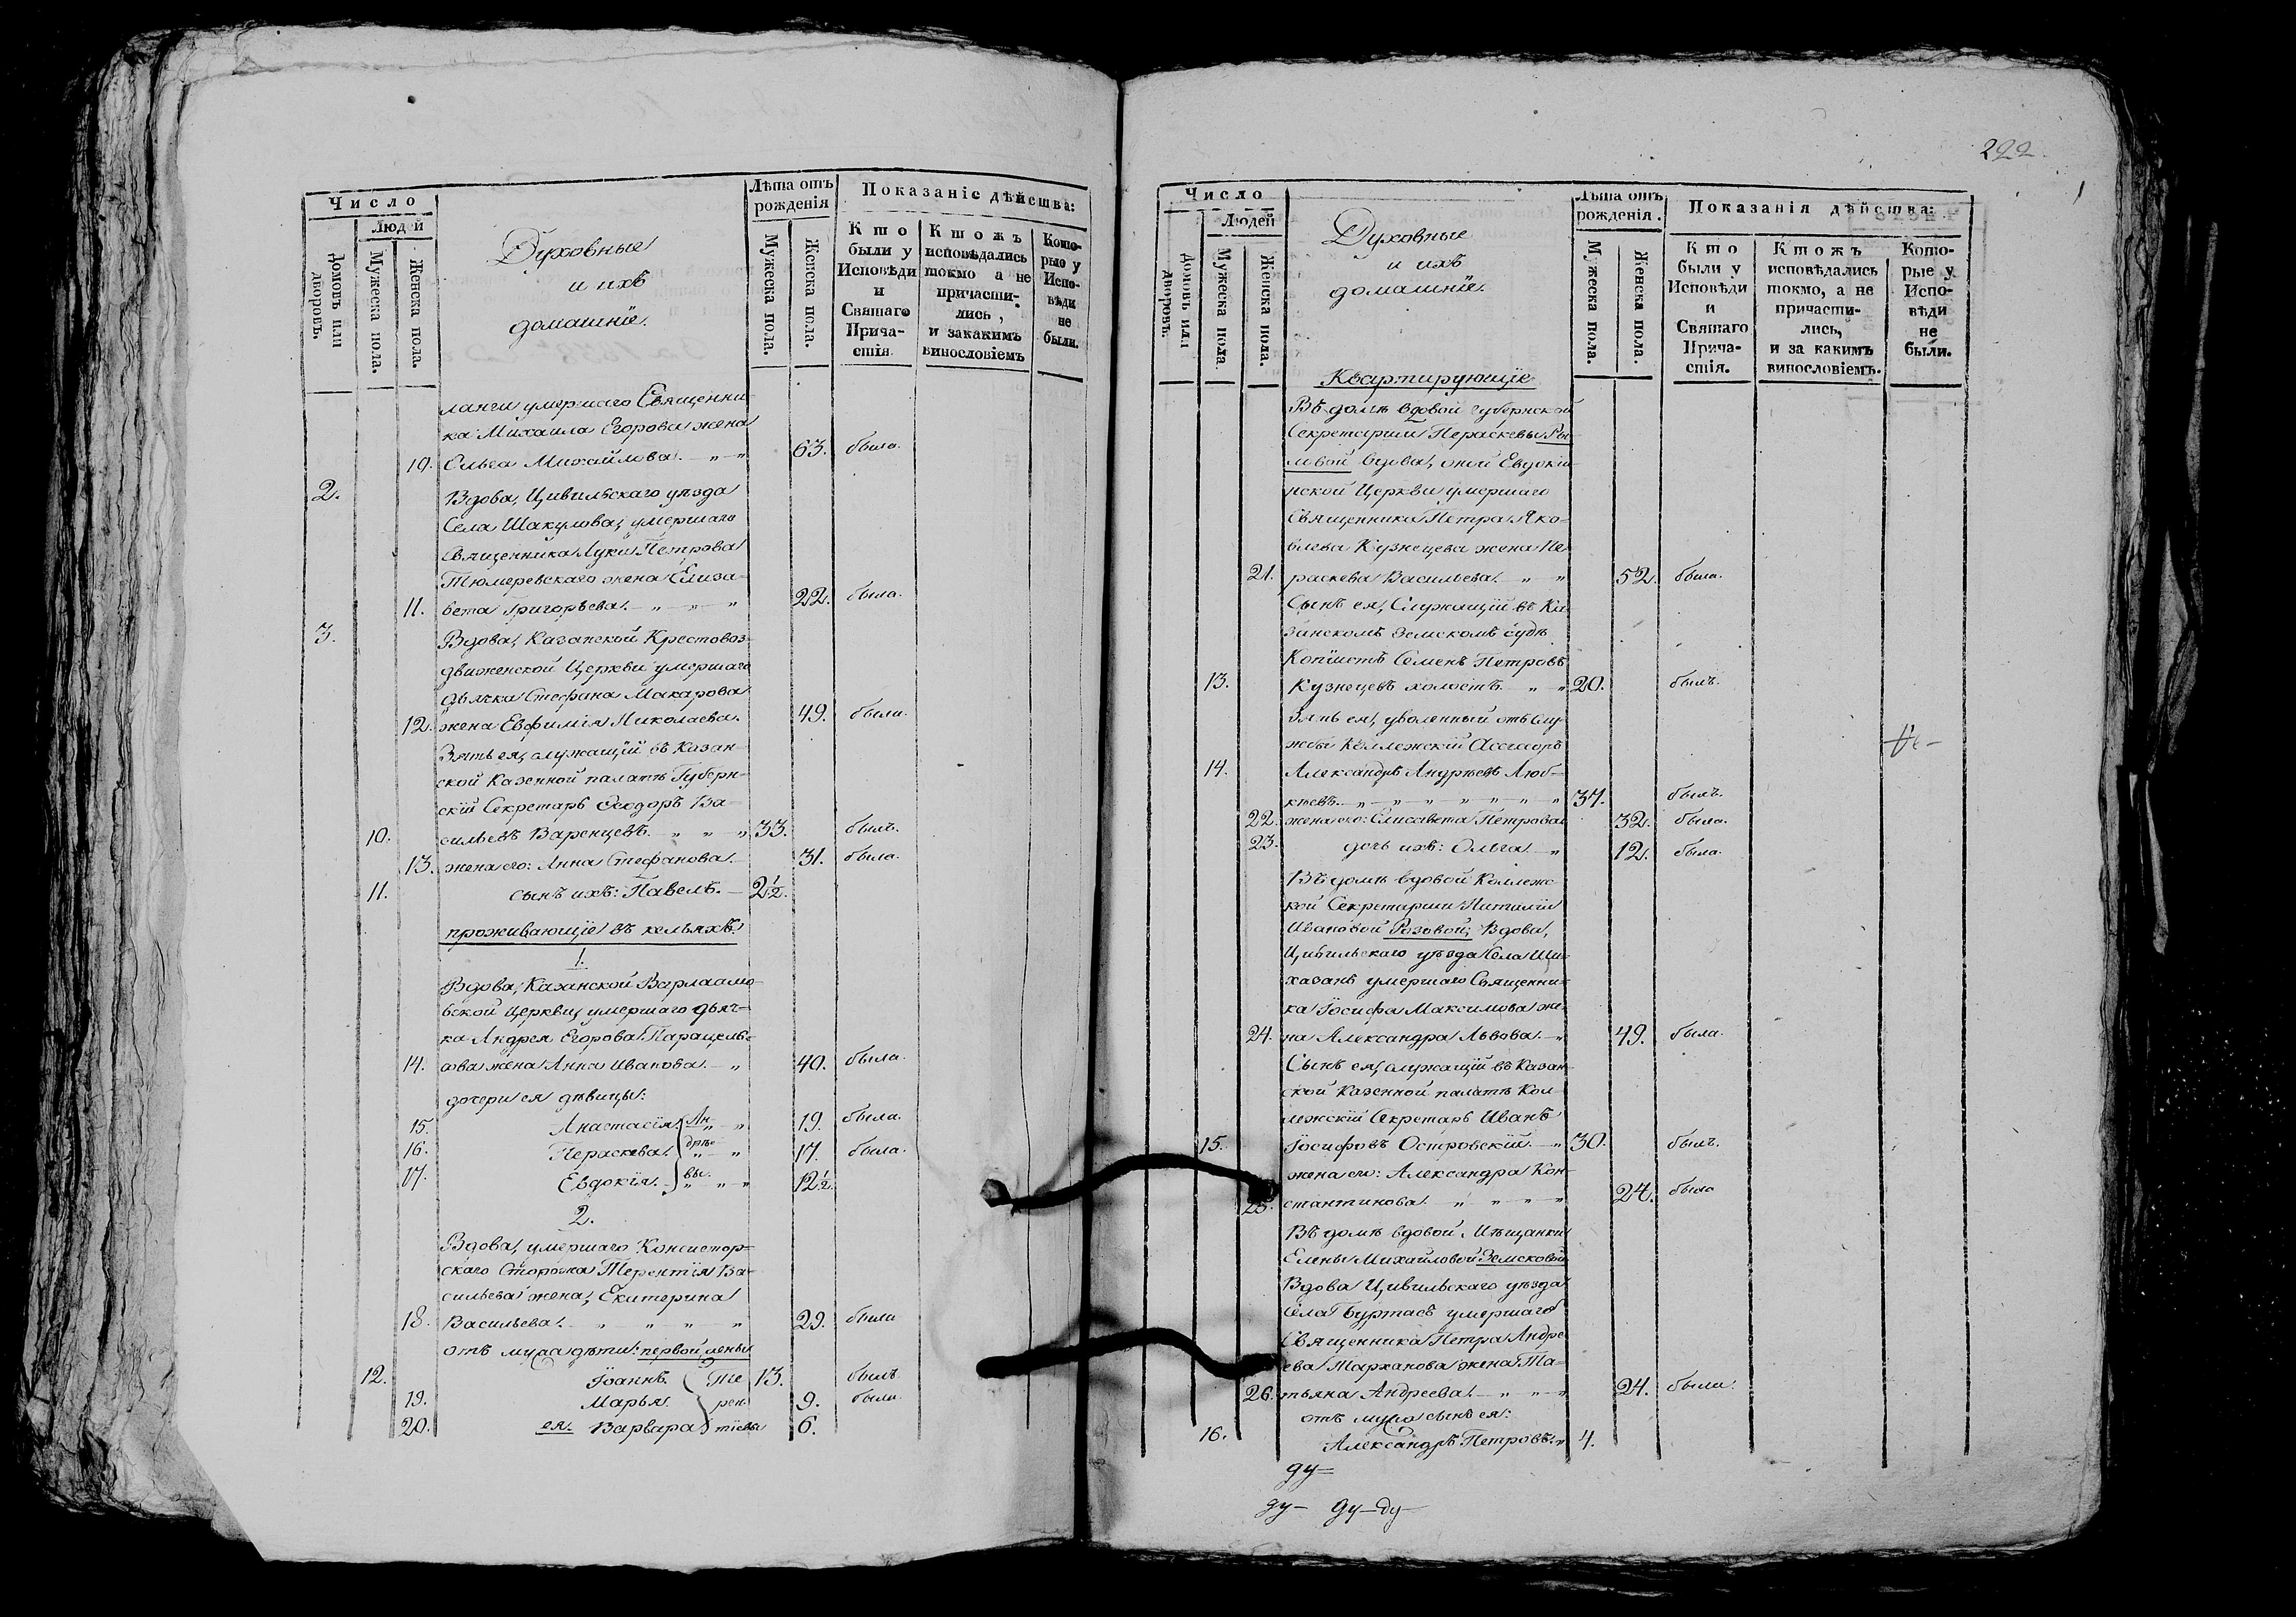 Число
Людей
Домовъ или дворовъ.
Мужеска пола.
Женска пола.
Духовные
и ихъ
домашнїе.
Лѣта отъ рожденія
Мужеска пола.
Женска пола.
Показаніе дѣйства:
Кто были у Исповѣди и Святаго Прича-стія
Ктожъ исповѣдались токмо а не причасти-лись, и закакимъ винословіемъ
Кото-рые у Испо-вѣди не были.
умершаго Священни-
ка Михаила Егорова жена
10. Ольга Михайлова. „ „ 63. была.
2. Вдова, Цивильскаго уѣзда
Села Шакулова, умершаго
Священника Луки Петрова
Тюмеревскаго жена Елиза-
11. бета Григорьева. „ „ „ 22. была.
3. Вдова, Казанской Крестовоз-
движенской Церкви умершаго
дьячка Стефана Макарова
12. жена Евфимїя Николаева. 49. была.
Зять ея, служащїй въ Казан-
ской Казенной палатѣ Губерн-
скїй Секретарь Ѳеодоръ Ва-
10. сильевъ Варенцевъ. „ „ „ 33. былъ.
13. жена его: Анна Стефанова. 31. была.
11. сынъ ихъ: Павелъ. 2½.
проживающїе въ кельяхъ
1.
Вдова, Казанской Варлаамо-
вской Церкви, умершаго дьяч-
ка Андрея Егорова Парацель-
14. сова жена Анна Иванова. „ 40. была.
дочери ея дѣвицы:
15. Анастасїя. Ан- „ 19. была.
16. Пераскева. дрѣе- „ „ 17. была.
17. Евдокїя. вы. „ „ „ 12½.
2.
Вдова, умершаго Консистор-
скаго Сторожа Терентїя Ва-
сильева жена, Екатерина
18. Васильева. „ „ „ „ 29. была
отъ мужа дѣти: первой жены
12. Їоаннъ. Те 13. былъ
19. Марья. рен 9. была.
20. ея. Варвара тїевы 6.
222
Число
Людей
Домовъ или дворовъ.
Мужеска пола
Женска пола.
Духовные
и ихъ
домашнїе.
Лѣта отъ рожденія.
Мужеска пола.
Женска пола.
Показанія дѣйства:
Кто были у Исповѣди и Святаго Прича-стія.
Ктожъ исповѣдались токмо, а не причасти-лись, и за какимъ винословіемъ.
Кото-рые у Испо-вѣди не были.
Квартирующїе
Въ домѣ вдовой губернской
Секретарши Пераскевы Ры-
ловой вдова, оной Евдокїи-
нской Церкви умершаго
Священника Петра Яко-
влева Кузнецева жена Пе-
21. раскева Васильева. „ „ 52. была.
Сынъ ея, Служащїй въ Ка-
занскомъ Земскомъ судѣ
Копїистъ Семенъ Петровъ
13. Кузнецевъ холостъ. „ „ 20. былъ.
Зять ея, уволенный отъ слу-
жбы Коллежскїй Ассесоръ
14. Александръ Андрѣевъ Люб-
„ „ „ „ „ „ „ 37. былъ.
22. жена его: Елисавета Петрова 32. была.
23. дочь ихъ: Ольга. „ 12. была.
Въ домѣ вдовой Коллежс-
кой Секретарши Наталїи
Ивановой Розовой, Вдова,
Цивильскаго уѣзда Села Ши-
хазанъ умершаго Священни-
ка Їосифа Максимова же-
24. на Александра Львова. „ 49. была.
Сынъ ея, служащїй въ Казан-
ской Казенной палатѣ Кол-
лежскїй Секретарь Иванъ
15. Їосифовъ Островскїй. „ 30. былъ.
жена его: Александра Кон-
25. стантинова. „ „ „ „ 24. была
Въ домѣ вдовой Мѣщанки
Елены Михайловой Земсковой
Вдова Цивильскаго уѣзда
села Буртасъ умершаго
Священника Петра Андре-
ева Тарханова жена Та-
26. тьяна Андреева. „ „ 24. была.
отъ мужа сынъ ея:
16. Александръ Петровъ. „ 4.
ду=
ду- ду-ду-